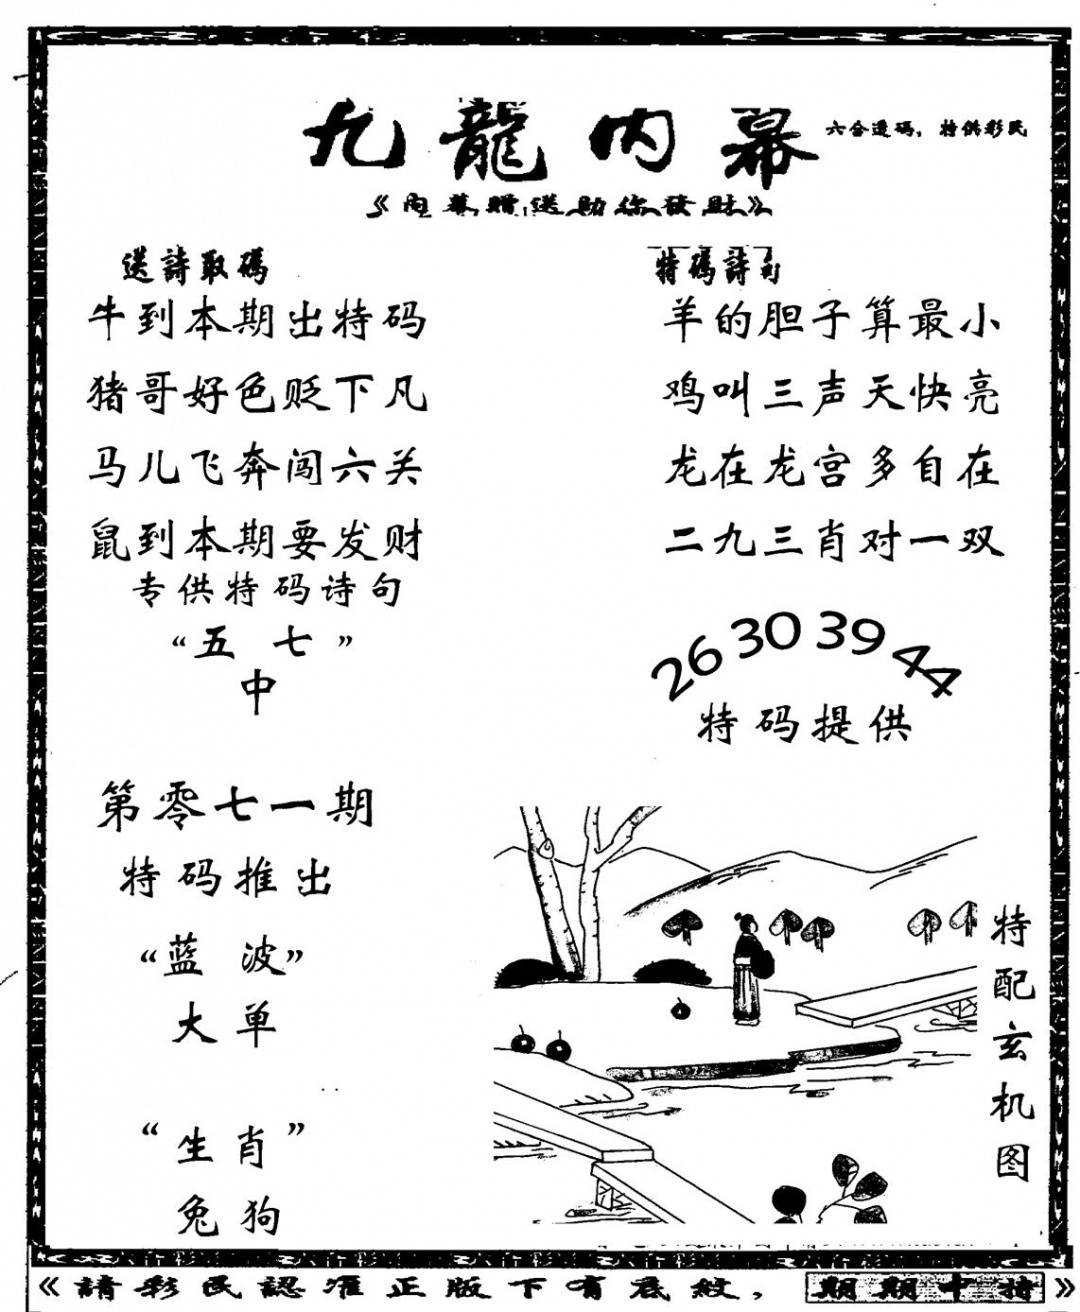 九龍内幕
六合透码，特供彩民
《内幕赠送助你發財》
送詩取碼
牛到本期出特码
猪哥好色贬下凡
马儿飞奔闯六关
鼠到本期要发财
专供特码诗句
“五 七”
中
第零七一期
特码推出
“蓝 波”
大单
“生肖”
兔狗
特碼詩句
羊的胆子算最小
鸡叫三声天快亮
龙在龙宫多自在
二九三肖对一双
26 30 39 44
特码提供
特配玄机图
《請彩民認准正版下有底紋，期期中特》